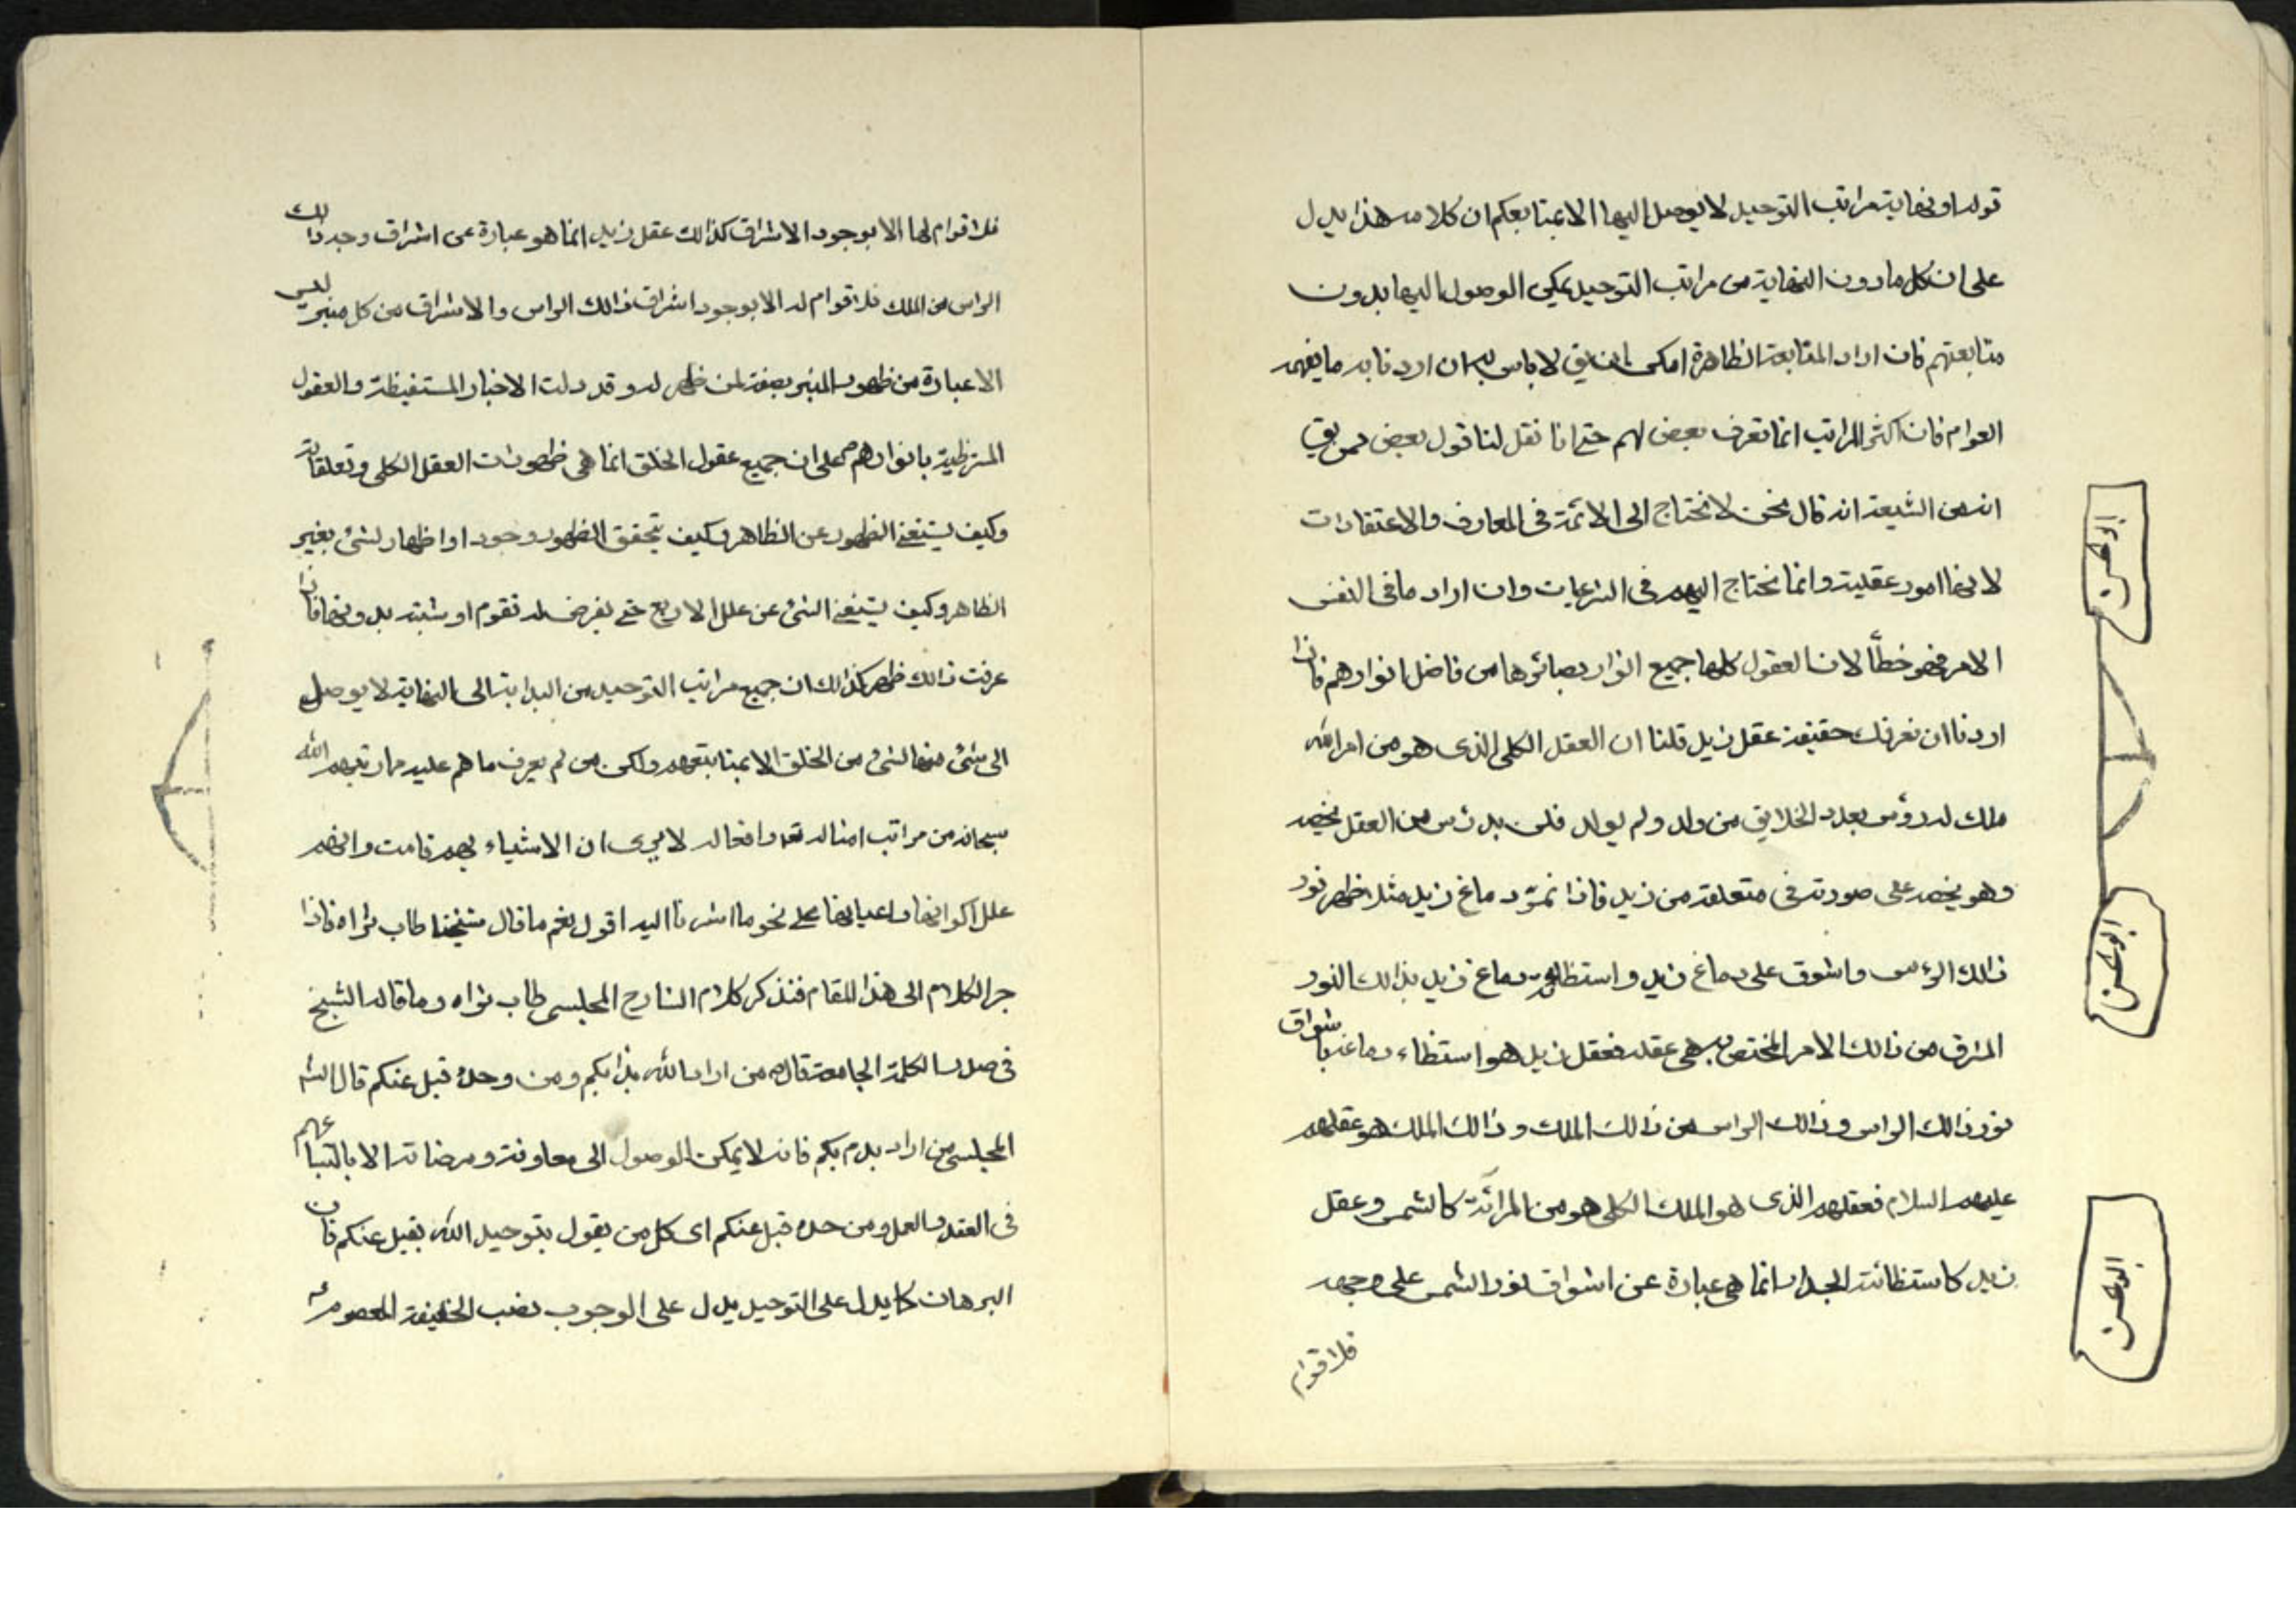 قوله او نهاية مراتب التوحيد لا يوصل اليها الا بمتابعكم ان كلامه هذا يدل
على ان كل ما دون النهاية من مراتب التوحيد يمكن الوصول اليها بدون
متابعتهم فان اراد المتابعة الظاهرة امكن ان يق لا باس به ان اردنا به ما يفهمه
العوام فان اكثر المراتب انما تعرف بعض لهم حتى انا نقل لنا قول بعض ممن يق
انه من الشيعة انه قال نحن لا نحتاج الى الائمة في المعارف والاعتقادات
لانها امور عقلية وانما نحتاج اليهم في الشرعيات وان اراد ما في النفس
الامر فهو خطأ لان العقول كلها جميع انوار بصائرها من فاضل انوارهم فاذا
اردنا ان نعرفك حقيقة عقل زيد قلنا ان العقل الكلي الذي هو من امر الله
ملك له رؤس بعدد الخلايق من ولد ولم يولد فلزيد رأس من العقل يخصه
وهو يخصه على صورته في متعلقه من زيد فاذا تم دماغ زيد مثلا ظهر نور
ذالك الرءس واشرق على دماغ زيد واستظاء دماغ زيد بذالك النور
المشرق من ذالك الامر المختص به هي عقله فعقل زيد هو استظاء دماغه باشراق
نور ذالك الراس وذالك الراس من ذالك الملك وذالك الملك هو عقلهم
عليهم السلام فعقلهم الذي هو الملك الكلي هو من المرائة كالشمس وعقل
زيد كاستظائة الجدار انما هي عبارة عن اشراق نور الشمس على وجهه
فلا قوام
ابو الحسن
ابو الحسن
ابو الحسن
فلا قوام لها الا بوجود الاشراق كذالك عقل زيد انما هو عبارة عن اشراق وجه ذالك
الراس من الملك فلا قوام له الا بوجود اشراق ذالك الراس والاشراق من كل منير ليس
الا عبارة من ظهور المنير بصفة لمن ظهر له وقد دلت الاخبار المستفيظة والعقول
المستظيئة بانوارهم على ان جميع عقول الخلق انما هي ظهورات العقل الكلي وتعلقاته
وكيف يستغني الظهور عن الظاهر وكيف يتحقق الظهور وجود او اظهار لشئ بغير
الظاهر وكيف يستغني الشئ عن علل الاربع حتى يفرض له تقوم او شيئية بدونها فاذا
عرفت ذالك ظهر كذالك ان جميع مراتب التوحيد من البداية الى النهاية لا يوصل
الى شئ منها لشئ من الخلق الا بمتابعتهم ولكن من لم يعرف ما هم عليه مما رتبهم الله
سبحانه من مراتب امثاله تعه وافعاله لا يرى ان الاشياء بهم قامت وانهم
علل اكوانها واعيانها على نحو ما اشرنا اليه اقول نعم ما قال شيخنا طاب ثراه فاذا
جر الكلام الى هذا المقام فنذكر كلام الشارح المجلسي طاب ثراه وما قاله الشيخ
في صدر الكلمة الجامعة قال من اراد الله بدأ بكم ومن وحده قبل عنكم قال الش
المجلسي من اراد بدء بكم فانه لا يمكن الوصول الى معاونته ومرضاته الا باتباعهم
في العقد والعمل ومن حده قبل عنكم اى كل من يقول بتوحيد الله يقبل عنكم فان
البرهان كما يدل على التوحيد يدل على الوجوب نصب الخليفة المعصوم